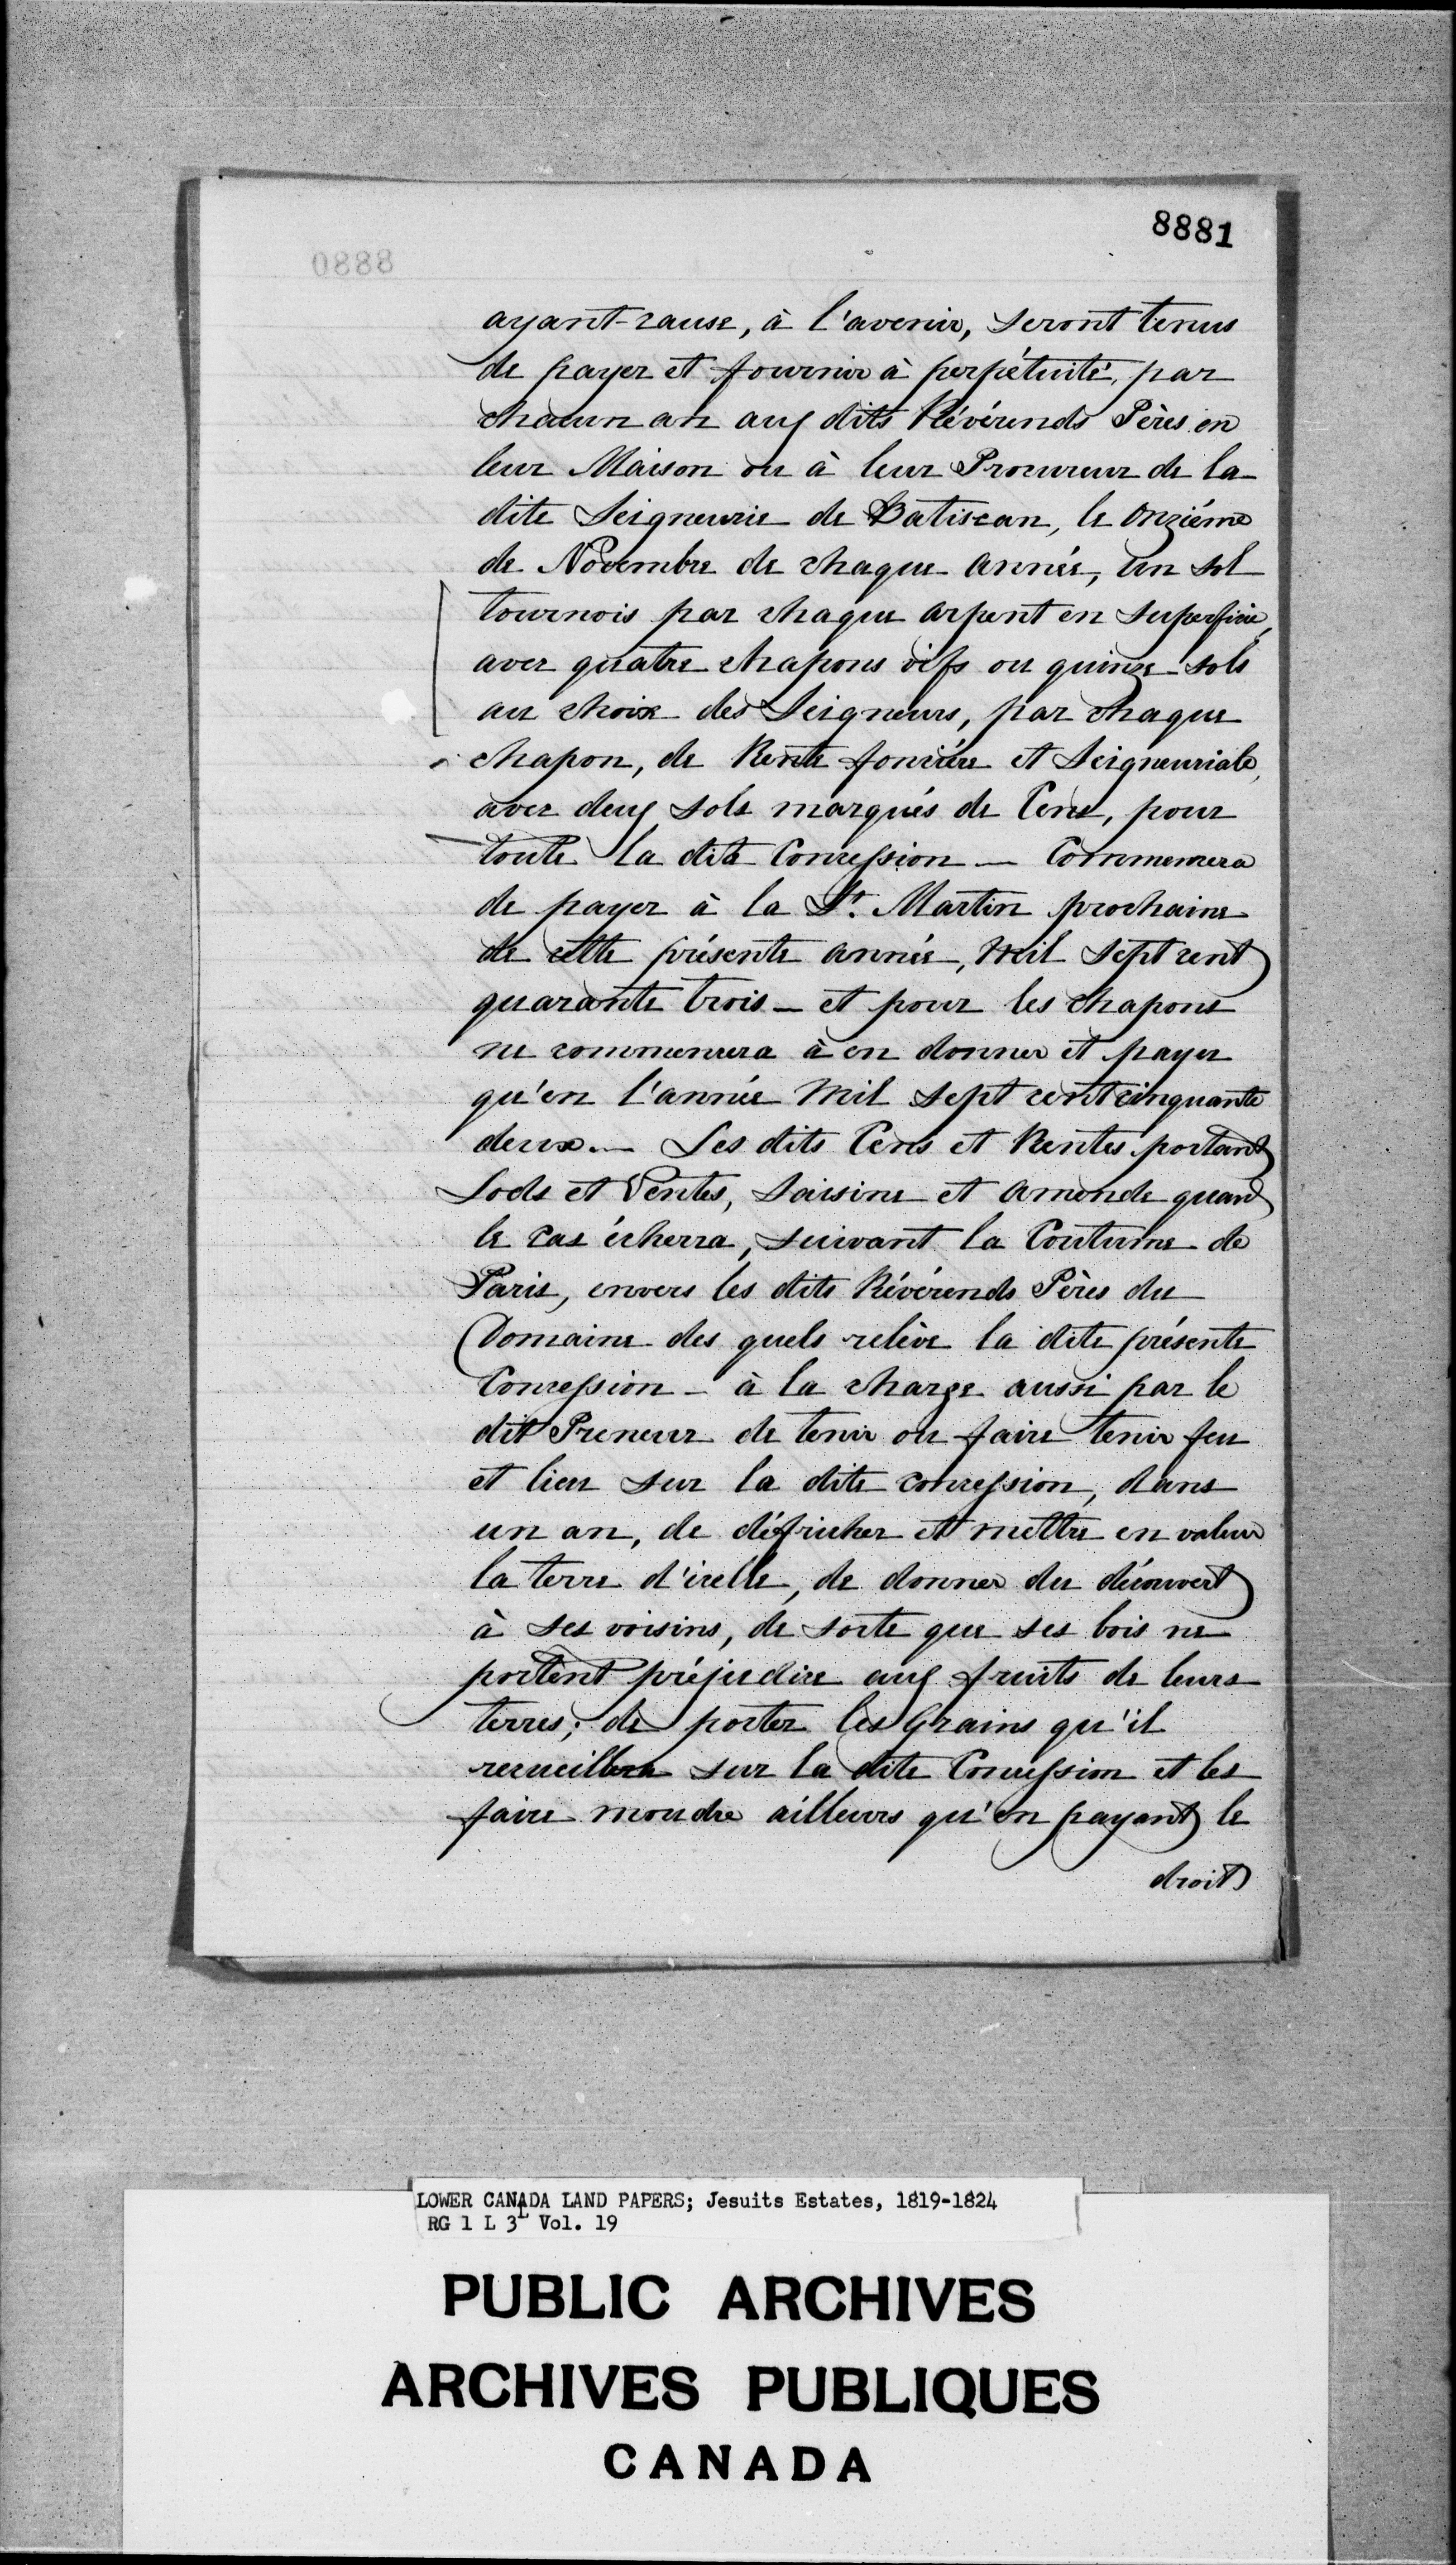 8881
0888
ayant-cause, à l'avenir, seront tenus
de payer et fournir à perpétuité, par
chacun an aux dits Révérends Pères en
leur Maison ou à leur Procureur de la
dite Seigneurie de Batiscan, le Onzième
de Novembre de chaque année, un sol
tournois par chaque arpent en superficie,
avec quatre chapons vifs ou quinze sols
au choix des Seigneurs, par chaque
chapon, de Rente foncière et Seigneuriale,
avec deux sols marqués de Cens, pour
toute la dite Concession — Commencera
de payer à la St. Martin prochaine
de cette présente année, Mil sept cent
quarante trois — et pour les chapons
ne commencera à en donner et payer
qu'en l'année Mil sept cent cinquante
deux. — Les dits Cens et Rentes portant
Lods et Ventes, Saisine et amende quand
le cas écherra, suivant la Coutume de
Paris, envers les dits Révérends Pères du
Domaine des quels relève la dite présente
Concession — à la charge aussi par le
dit Preneur de tenir ou faire tenir feu
et lieu sur la dite concession, dans
un an, de défricher et mettre en valeur
la terre d'icelle, de donner du découvert
à ses voisins, de sorte que ses bois ne
portent préjudice aux fruits de leurs
terres; de porter les Grains qu'il
recueillera sur la dite Concession et les
faire moudre ailleurs qu'en payant le
droit
LOWER CANADA LAND PAPERS; Jesuits Estates, 1819-1824
RG 1 L 3L Vol. 19
PUBLIC ARCHIVES
ARCHIVES PUBLIQUES
CANADA